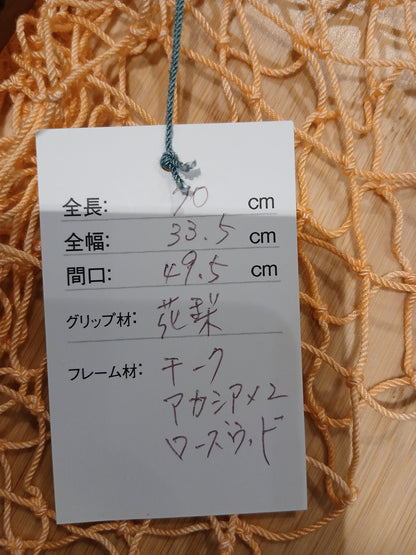 全長: 70 cm
全幅: 33.5 cm
間口: 49.5 cm
グリップ材: 花梨
フレーム材: チーク
アカシア×2
ローズウッド